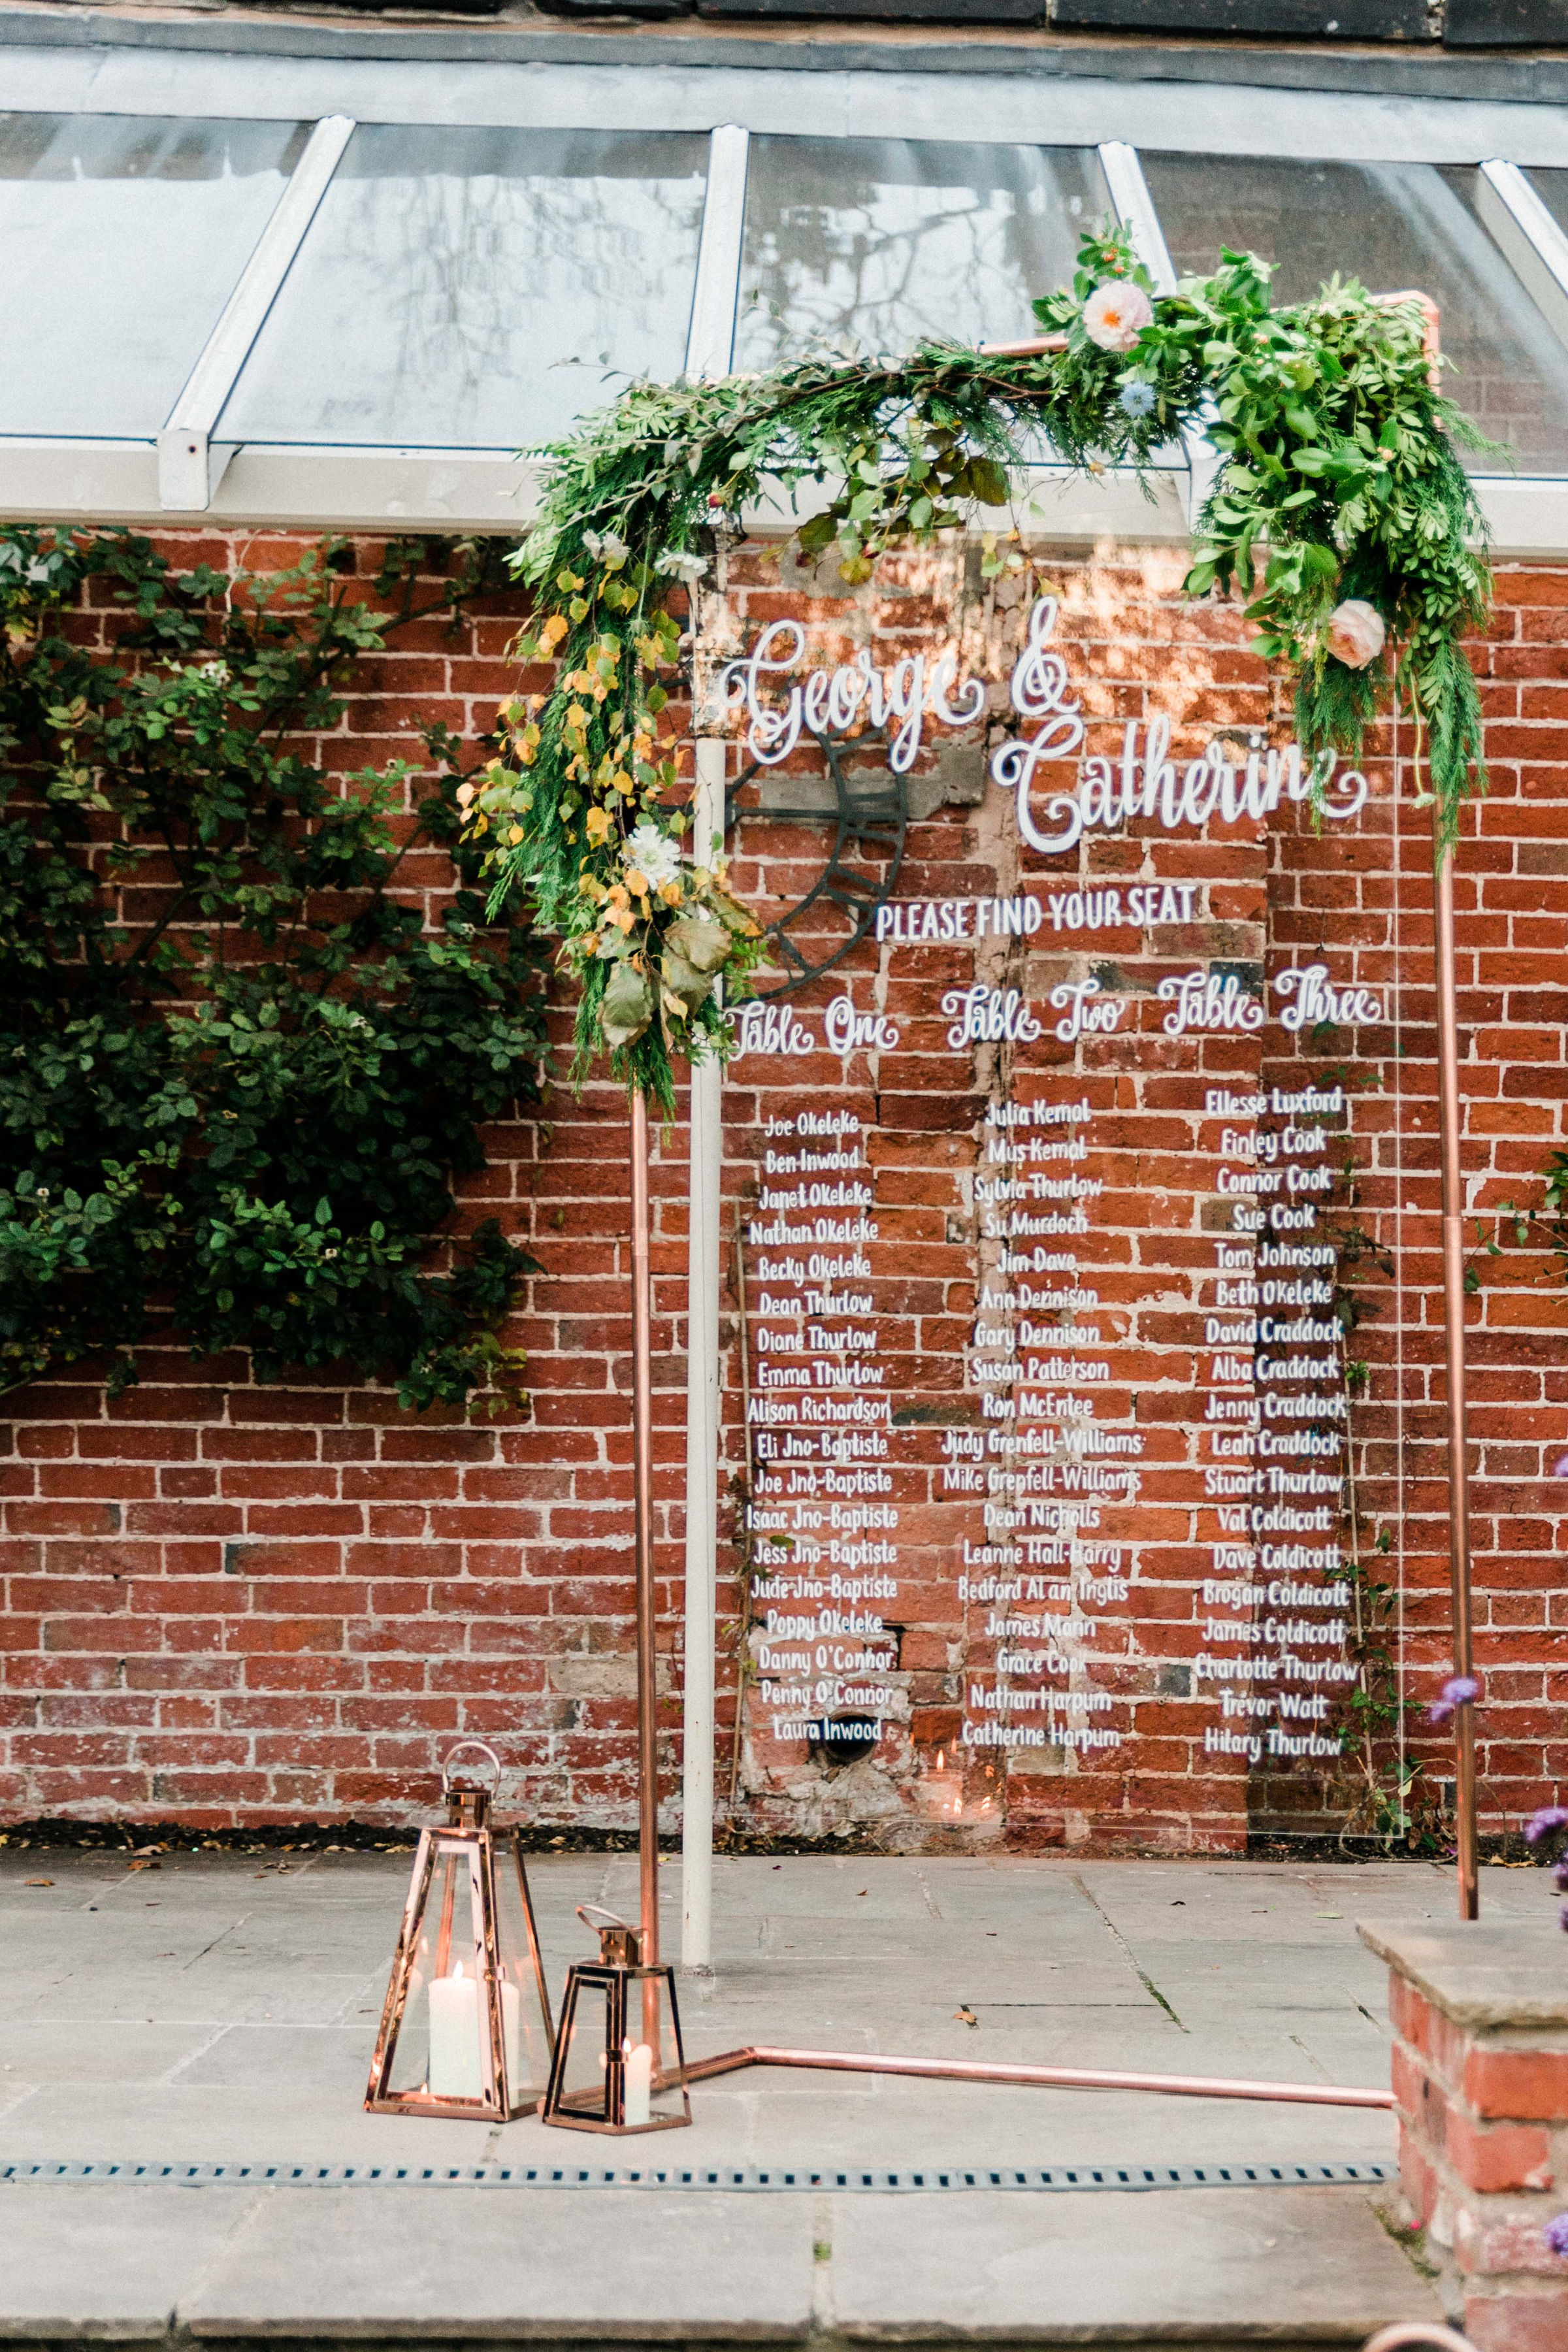 George &
Catherine
PLEASE FIND YOUR SEAT
Table One
Joe Okeleke
Ben Inwood
Janet Okeleke
Nathan Okeleke
Becky Okeleke
Dean Thurlow
Diane Thurlow
Emma Thurlow
Alison Richardson
Eli Jno-Baptiste
Joe Jno-Baptiste
Isaac Jno-Baptiste
Jess Jno-Baptiste
Jude Jno-Baptiste
Poppy Okeleke
Danny O'Connor
Penny O'Connor
Laura Inwood
Table Two
Julia Kemal
Mus Kemal
Sylvia Thurlow
Su Murdoch
Jim Dave
Ann Dennison
Gary Dennison
Susan Patterson
Ron McEntee
Judy Grenfell-Williams
Mike Grenfell-Williams
Dean Nicholls
Leanne Hall-Harry
Bedford Alan Inglis
James Mann
Grace Cook
Nathan Harpum
Catherine Harpum
Table Three
Ellesse Luxford
Finley Cook
Connor Cook
Sue Cook
Tom Johnson
Beth Okeleke
David Craddock
Alba Craddock
Jenny Craddock
Leah Craddock
Stuart Thurlow
Val Coldicott
Dave Coldicott
Brogan Coldicott
James Coldicott
Charlotte Thurlow
Trevor Watt
Hilary Thurlow